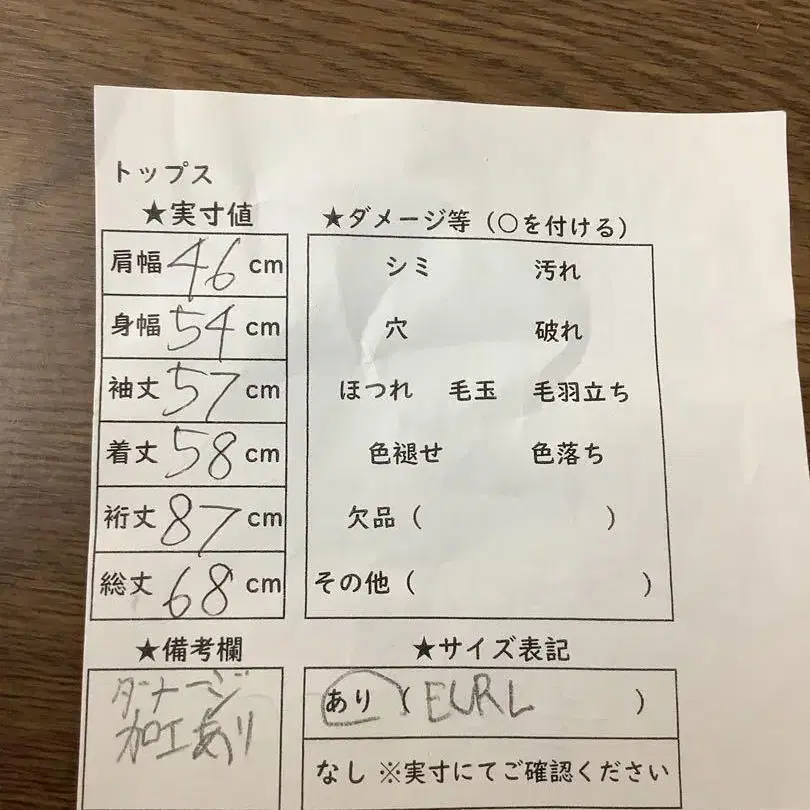 トップス
★実寸値
肩幅 46 cm
身幅 54 cm
袖丈 57 cm
着丈 58 cm
裄丈 87 cm
総丈 68 cm
★ダメージ等(〇を付ける)
シミ 汚れ
穴 破れ
ほつれ 毛玉 毛羽立ち
色褪せ 色落ち
欠品( )
その他( )
★備考欄
ダメージ
加工あり
★サイズ表記
あり(EURL )
なし ※実寸にてご確認ください